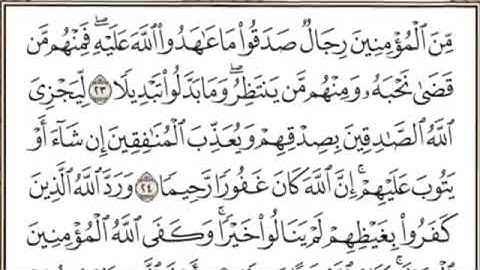 مِّنَ ٱلْمُؤْمِنِينَ رِجَالٌ صَدَقُوا۟ مَا عَـٰهَدُوا۟ ٱللَّهَ عَلَيْهِ ۖ فَمِنْهُم مَّن
قَضَىٰ نَحْبَهُۥ وَمِنْهُم مَّن يَنتَظِرُ ۖ وَمَا بَدَّلُوا۟ تَبْدِيلًا ٢٣ لِّيَجْزِىَ
ٱللَّهُ ٱلصَّـٰدِقِينَ بِصِدْقِهِمْ وَيُعَذِّبَ ٱلْمُنَـٰفِقِينَ إِن شَآءَ أَوْ
يَتُوبَ عَلَيْهِمْ ۚ إِنَّ ٱللَّهَ كَانَ غَفُورًا رَّحِيمًا ٢٤ وَرَدَّ ٱللَّهُ ٱلَّذِينَ
كَفَرُوا۟ بِغَيْظِهِمْ لَمْ يَنَالُوا۟ خَيْرًا ۚ وَكَفَى ٱللَّهُ ٱلْمُؤْمِنِينَ